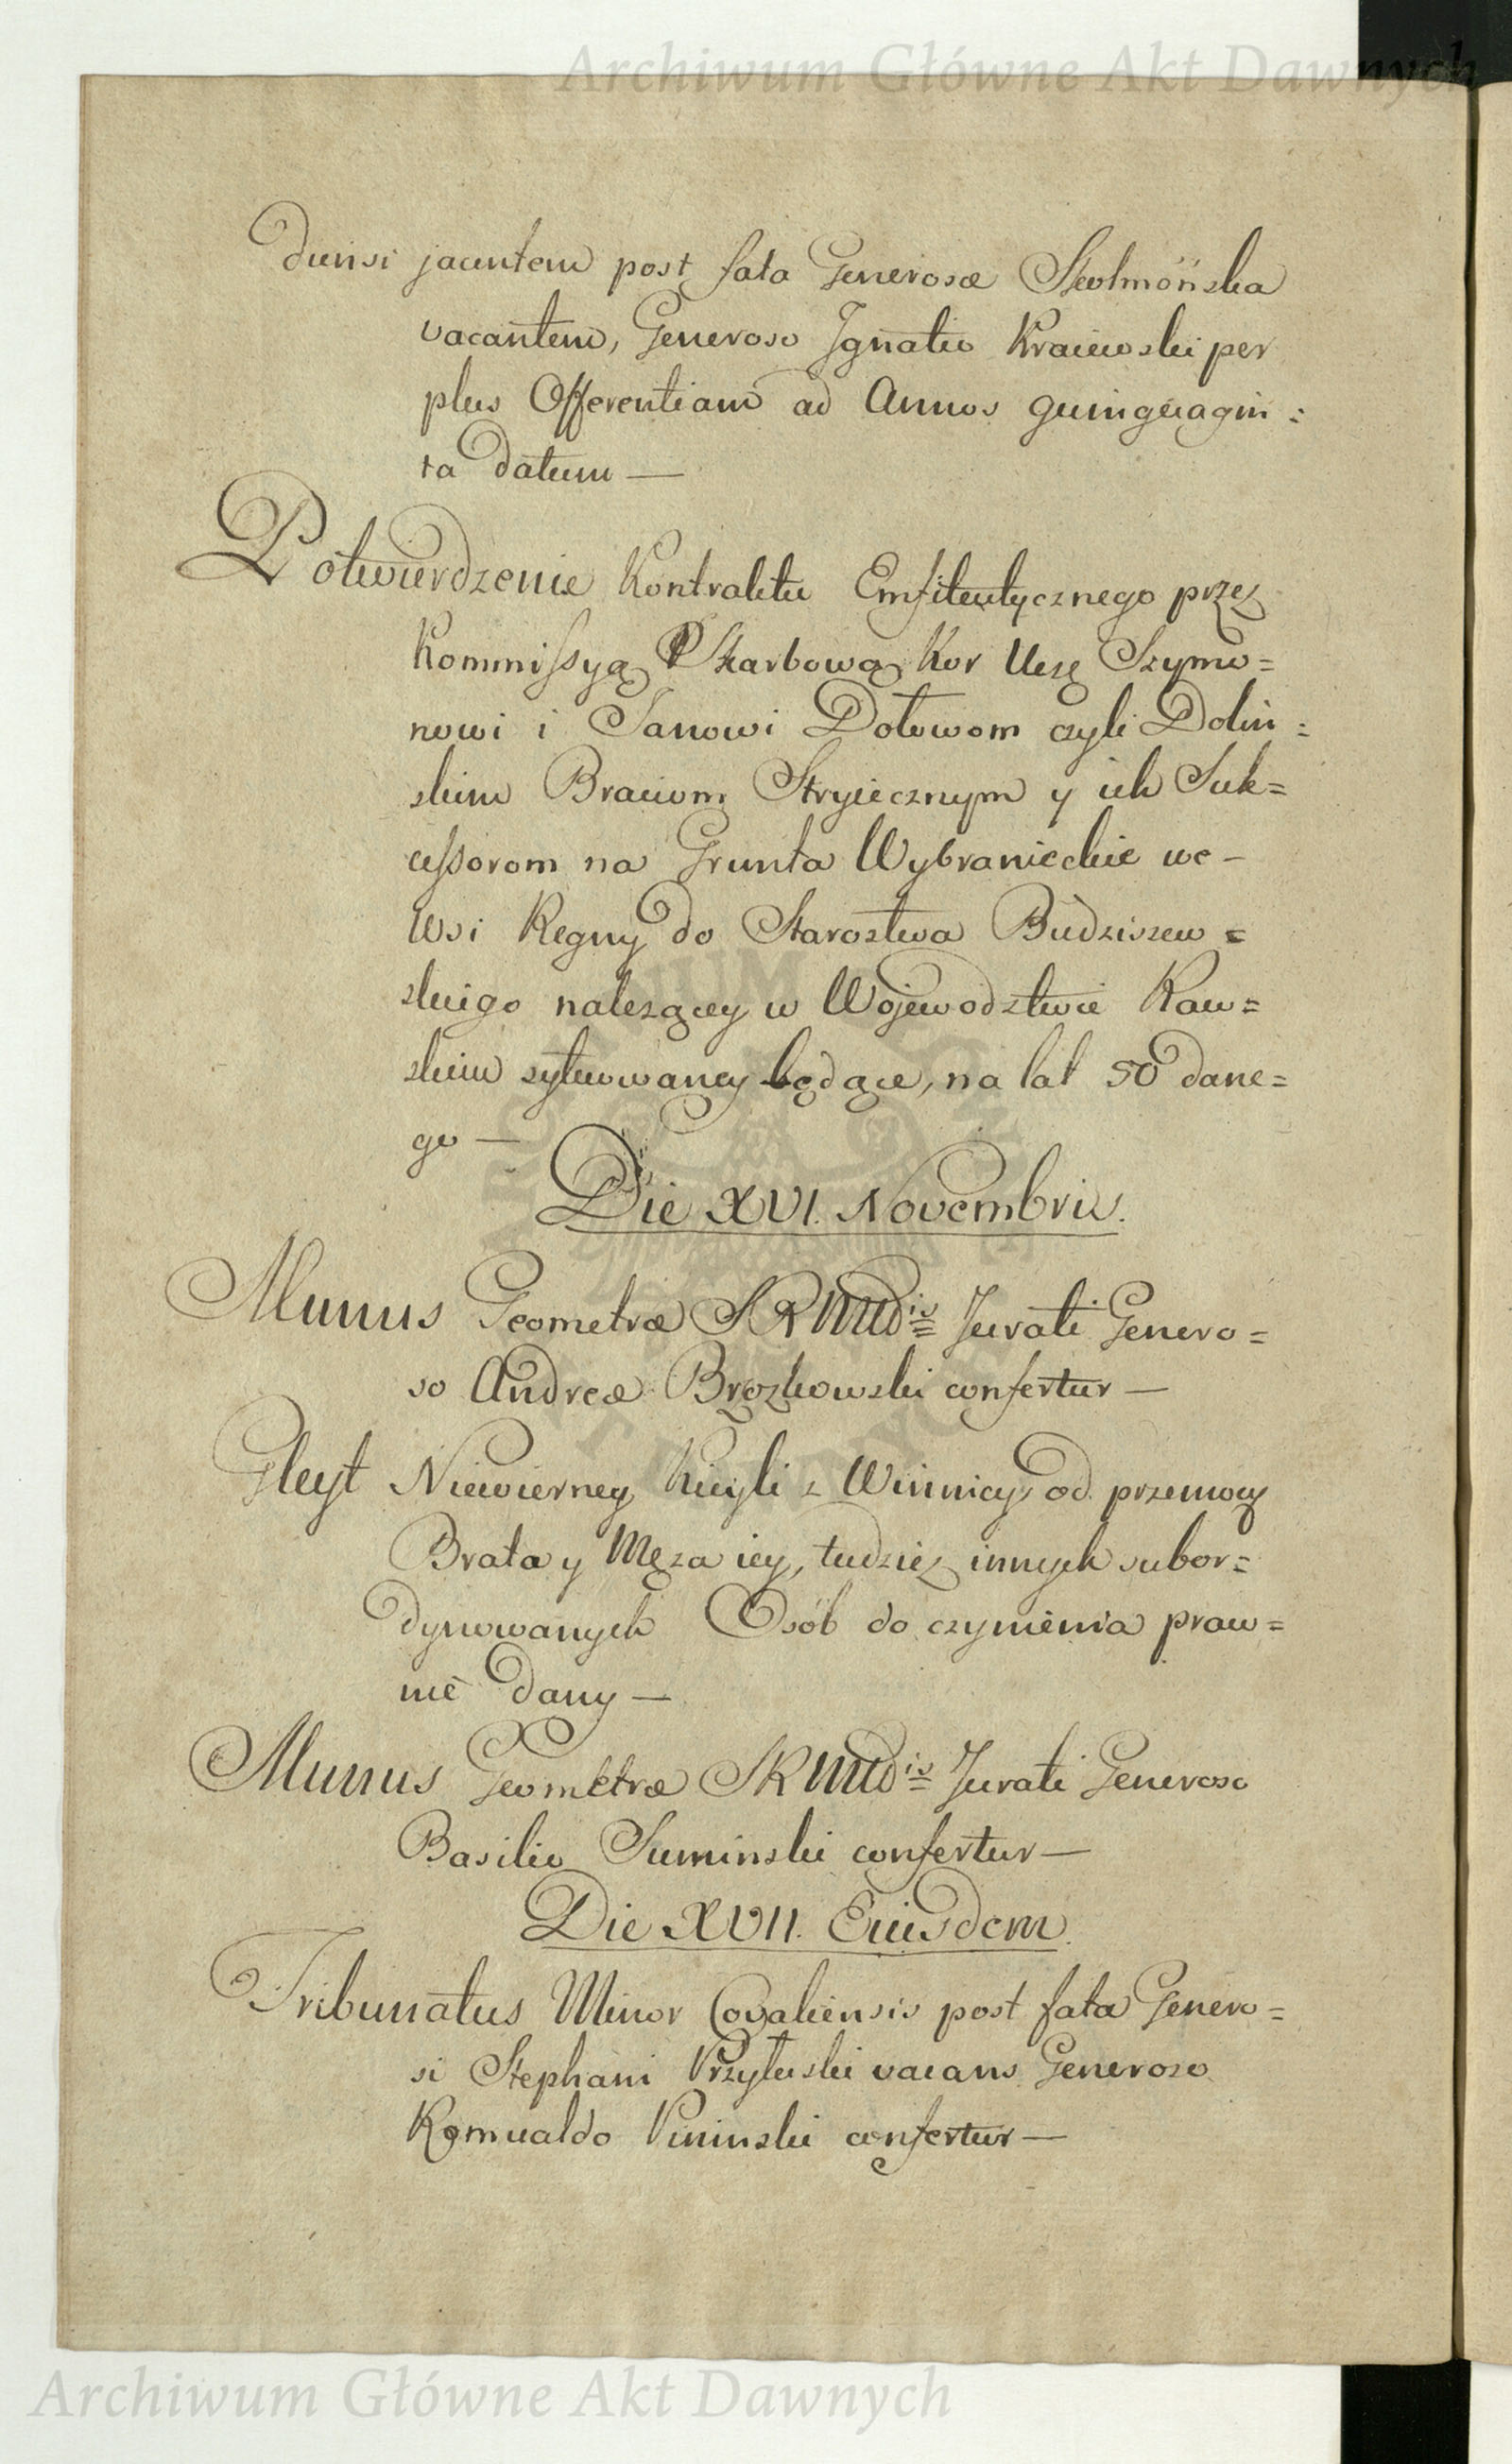 Archiwum Główne Akt Dawnych
diensi jacentem post fata Generosæ Skolmońska
vacantem, Generoso Jgnatio Kraiewski per
plus Offerentiam ad Annos quinquagin:
ta datum —
Potwierdzenie Kontraktu Emfiteutycznego przez
Kommissyą Skarbową Kor Szymo=
nowi i Janowi Dołowom czyli Doliń:
skim Braciom Stryiecznym y ich Suk=
cessorom na Grunta Wybranieckie we –
Wsi Regny do Starostwa Budziszew=
skiego nalezącey w Wojewodztwie Raw=
skim sytuowaney będące, na lat 50 dane=
go —
Die XVI. Novembris.
Munus Geometræ SRMttis Jurati Genero=
so Andreæ Brozkowski confertur —
Gleyt Niewierney Kieyli z Winnicy od przemocy
Brata y Męza iey, tudziez innych subor=
dynowanych Osób do czynienia praw=
nie dany —
Munus Geometræ SRMttis Jurati Generoso
Basilio Suminski confertur —
Die XVII. Eiusdem.
Tribunatus Minor Covaliensis post fata Genero=
si Stephani Przyłuski vacans Generoso
Romualdo Pininski confertur —
Archiwum Główne Akt Dawnych